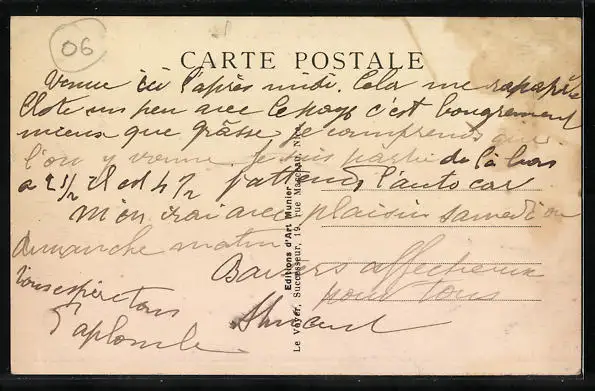 06
CARTE POSTALE
Venue ici l'après midi. Cela me
un peu avec le pays c'est bougrement
mieux que grasse je comprends que
l'on y vienne. Je suis partie de là bas
a 2 1/2 il est 4 1/2 j'attends l'autocar
M'en irai avec plaisir samedi ou
dimanche matin
Baisers affectueux
pour tous
d'aplomb
Editions d'Art Munier
Le Voyer, Successeur, 19, rue Maccarani, Nice